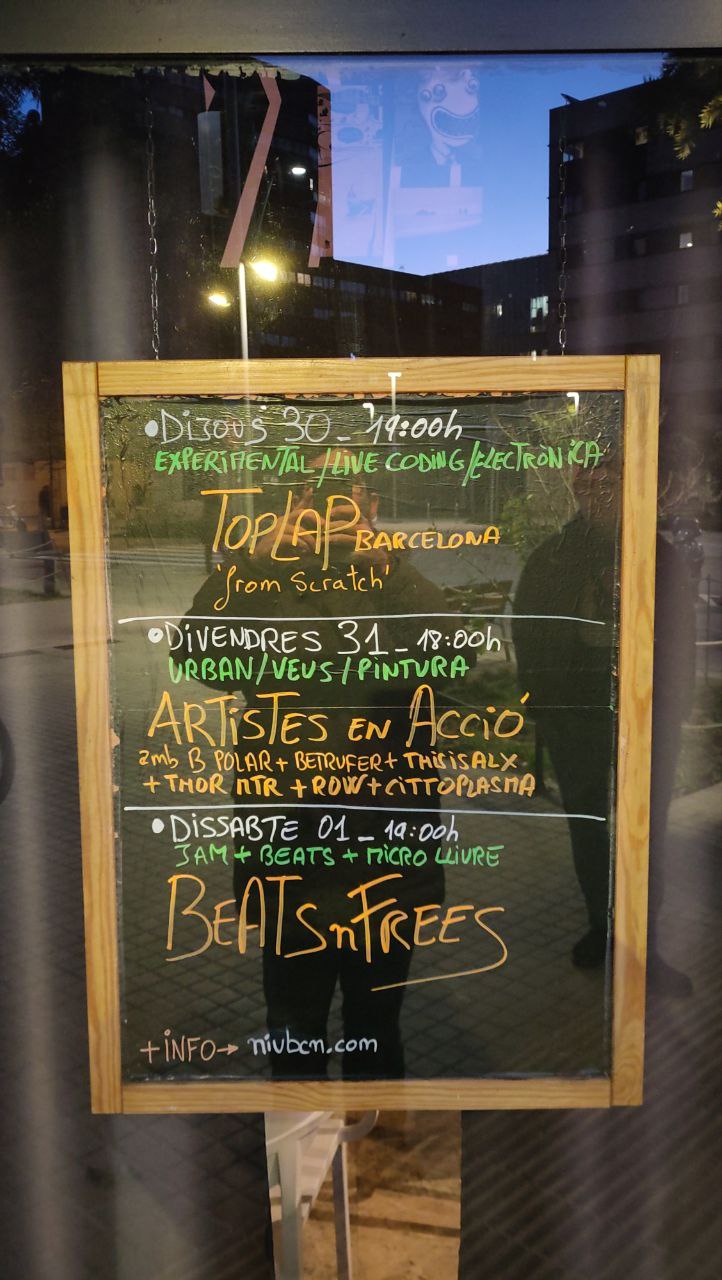 •Dijous 30_ 19:00h
EXPERIMENTAL/LIVE CODING/ELECTRÒNICA
TOPLAP BARCELONA
'from Scratch'
•DIVENDRES 31_18:00h
URBAN/VEUS/PINTURA
ARTISTES EN ACCIÓ
amb B POLAR + BETRUFER + THISISALX
+ THOR MTR + ROW + CITTOPLASMA
•DISSABTE 01_19:00h
JAM + BEATS + MICRO LLIURE
BEATSnFREES
+INFO→ niubcn.com